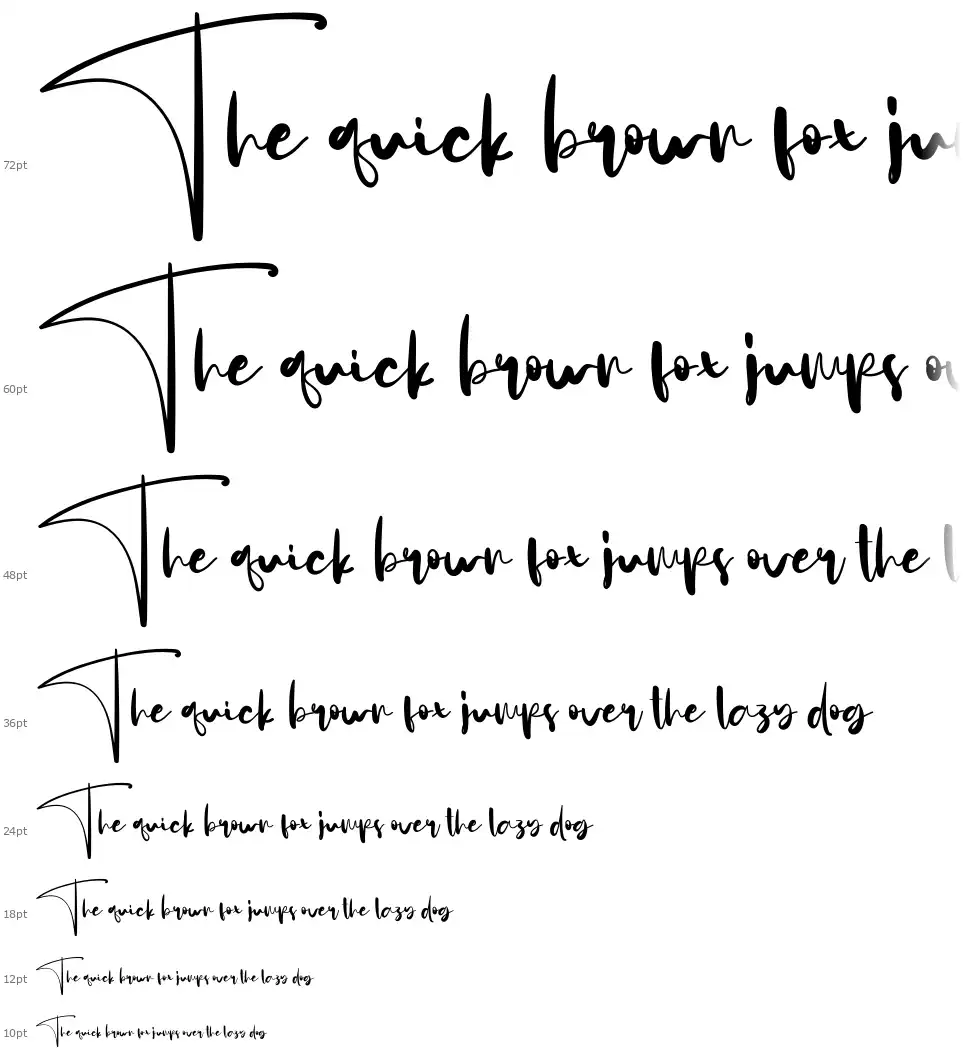 72pt The quick brown fox ju
60pt The quick brown fox jumps ov
48pt The quick brown fox jumps over the l
36pt The quick brown fox jumps over the lazy dog
24pt The quick brown fox jumps over the lazy dog
18pt The quick brown fox jumps over the lazy dog
12pt The quick brown fox jumps over the lazy dog
10pt The quick brown fox jumps over the lazy dog